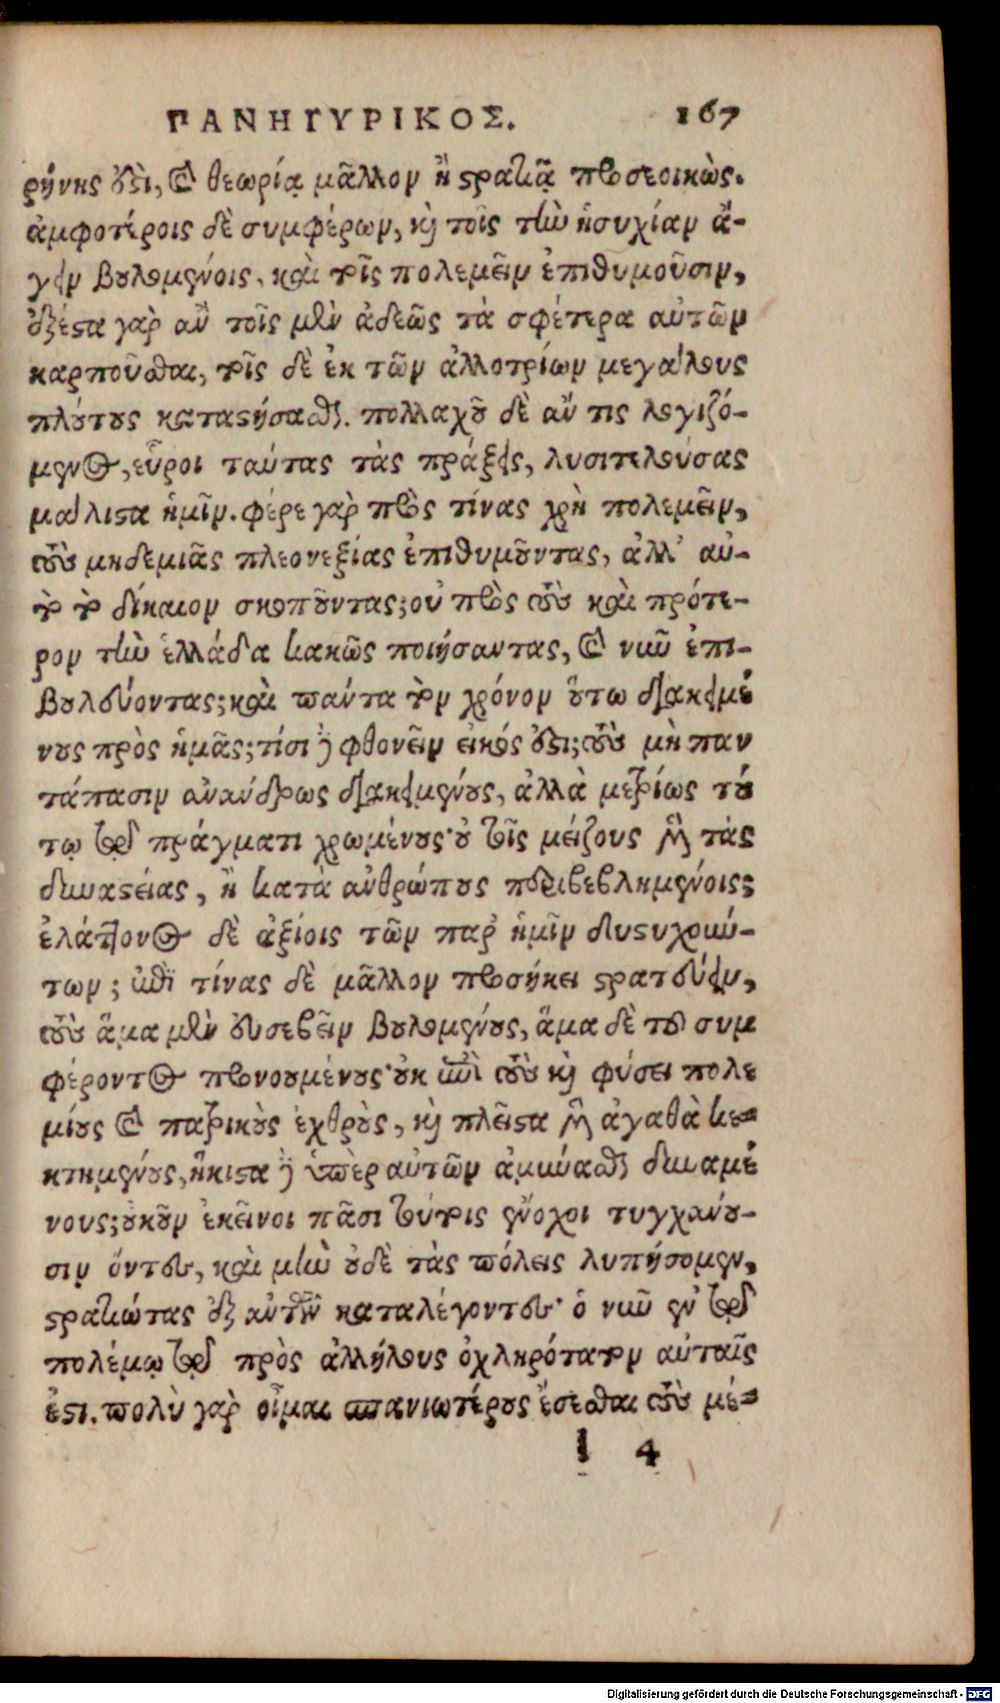 ΠΑΝΗΓΥΡΙΚΟΣ. 167
ρήνης ἐςὶ, καὶ θεωρίᾳ μᾶλλον ἢ ςρατιᾷ προσεοικώς.
ἀμφοτέροις δὲ συμφέρων, καὶ τοῖς τὴν ἡσυχίαν ἄ-
γειν βουλομένοις, καὶ τοῖς πολεμεῖν ἐπιθυμοῦσιν,
ἐξέςαι γὰρ ἂν τοῖς μὲν ἀδεῶς τὰ σφέτερα αὐτῶν
καρποῦσθαι, τοῖς δὲ ἐκ τῶν ἀλλοτρίων μεγάλους
πλούτους καταςήσασθαι. πολλαχοῦ δὲ ἄν τις λογιζό-
μενος, εὕροι ταύτας τὰς πράξεις, λυσιτελούσας
μάλιςα ἡμῖν. φέρε γὰρ πρὸς τίνας χρὴ πολεμεῖν,
τοὺς μηδεμιᾶς πλεονεξίας ἐπιθυμοῦντας, ἀλλ' αὐ-
τὸ τὸ δίκαιον σκοποῦντας; οὐ πρὸς τοὺς καὶ πρότε-
ρον τὴν ἑλλάδα κακῶς ποιήσαντας, καὶ νῦν ἐπι-
βουλεύοντας; καὶ πάντα τὸν χρόνον οὕτω διακειμέ
νους πρὸς ἡμᾶς; τίσι δὲ φθονεῖν εἰκός ἐςι; τοὺς μὴ παν
τάπασιν ἀνάνδρως διακειμένους, ἀλλὰ μετρίως τού
τῳ τῷ πράγματι χρωμένους· οὐ τοῖς μείζους μὲν τὰς
δυναςείας, ἢ κατὰ ἀνθρώπους περιβεβλημένοις;
ἐλάττονος δὲ ἀξίοις τῶν παρ' ἡμῖν δυςυχούν-
των; ἐπὶ τίνας δὲ μᾶλλον προσήκει ςρατεύειν,
τοὺς ἅμα μὲν εὐσεβεῖν βουλομένους, ἅμα δὲ τοῦ συμ
φέροντος προνουμένους· οὐκ ἐπὶ τοὺς καὶ φύσει πολε
μίους καὶ πατρικοὺς ἐχθροὺς, καὶ πλεῖςα μὲν ἀγαθὰ κε-
κτημένους, ἥκιςα δὲ ὑπὲρ αὐτῶν ἀμύνασθαι δυναμέ
νους; οὐκοῦν ἐκεῖνοι πᾶσι τούτοις ἔνοχοι τυγχάνου-
σιν ὄντες, καὶ μὴν οὐδὲ τὰς πόλεις λυπήσομεν,
ςρατιώτας ἐξ αὐτῶν καταλέγοντες· ὃ νῦν ἐν τῷ
πολέμῳ τῷ πρὸς ἀλλήλους ὀχληρότατον αὐταῖς
ἐςι. πολὺ γὰρ οἶμαι σπανιωτέρους ἔσεσθαι τοὺς μέ-
l 4
Digitalisierung gefördert durch die Deutsche Forschungsgemeinschaft - DFG